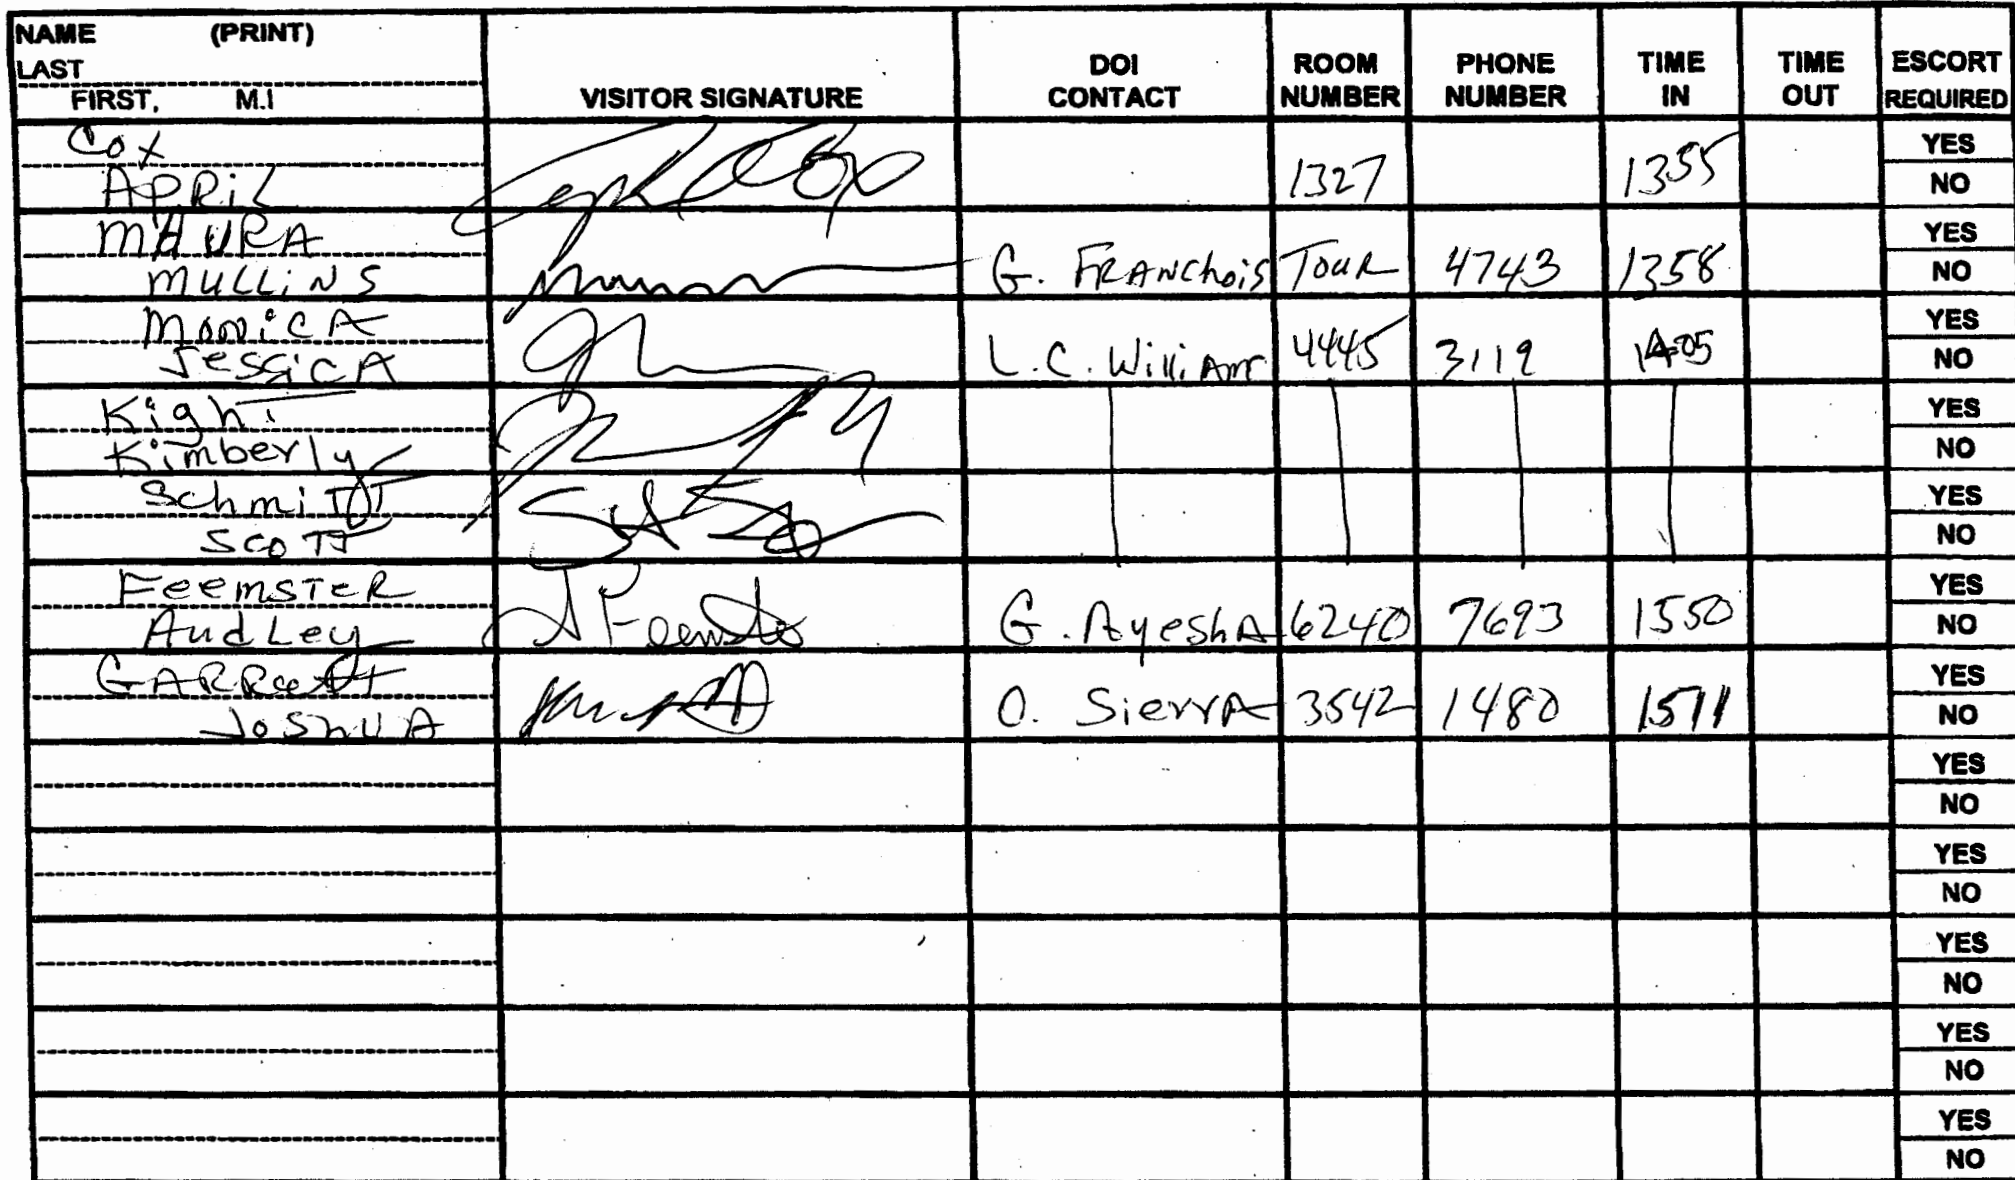 NAME (PRINT)
LAST
FIRST, M.I
VISITOR SIGNATURE
DOI CONTACT
ROOM NUMBER
PHONE NUMBER
TIME IN
TIME OUT
ESCORT REQUIRED
Cox
APRIL 1327 1355
YES
NO
MAURA
MULLINS G. FRANChois TOUR 4743 1358
YES
NO
MONICA
JESSICA L.C. William 4445 3119 1405
YES
NO
Kight
Kimberly
YES
NO
Schmitt
SCOTT
YES
NO
FEEMSTER
AudLey G. AyeshA 6240 7693 1550
YES
NO
JOSHUA O. SierrA 3542 1480 1511
YES
NO
YES
NO
YES
NO
YES
NO
YES
NO
YES
NO